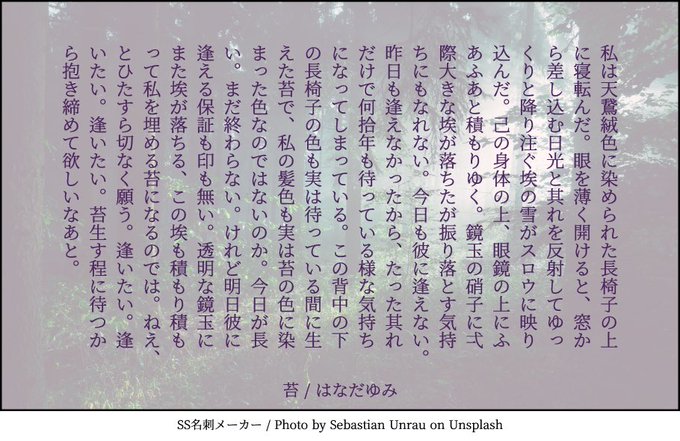 私は天鵞絨色に染められた長椅子の上
に寝転んだ。眼を薄く開けると、窓か
ら差し込む日光と其れを反射してゆっ
くりと降り注ぐ埃の雪がスロウに映り
込んだ。己の身体の上、眼鏡の上にふ
あふあと積もりゆく。鏡玉の硝子に弌
際大きな埃が落ちたが振り落とす気持
ちにもなれない。今日も彼に逢えない。
昨日も逢えなかったから、たった其れ
だけで何拾年も待っている様な気持ち
になってしまっている。この背中の下
の長椅子の色も実は待っている間に生
えた苔で、私の髪色も実は苔の色に染
まった色なのではないのか。今日が長
い。まだ終わらない。けれど明日彼に
逢える保証も印も無い。透明な鏡玉に
また埃が落ちる、この埃も積もり積も
って私を埋める苔になるのでは。ねえ、
とひたすら切なく願う。逢いたい。逢
いたい。逢いたい。苔生す程に待つか
ら抱き締めて欲しいなあと。
苔 / はなだゆみ
SS名刺メーカー / Photo by Sebastian Unrau on Unsplash